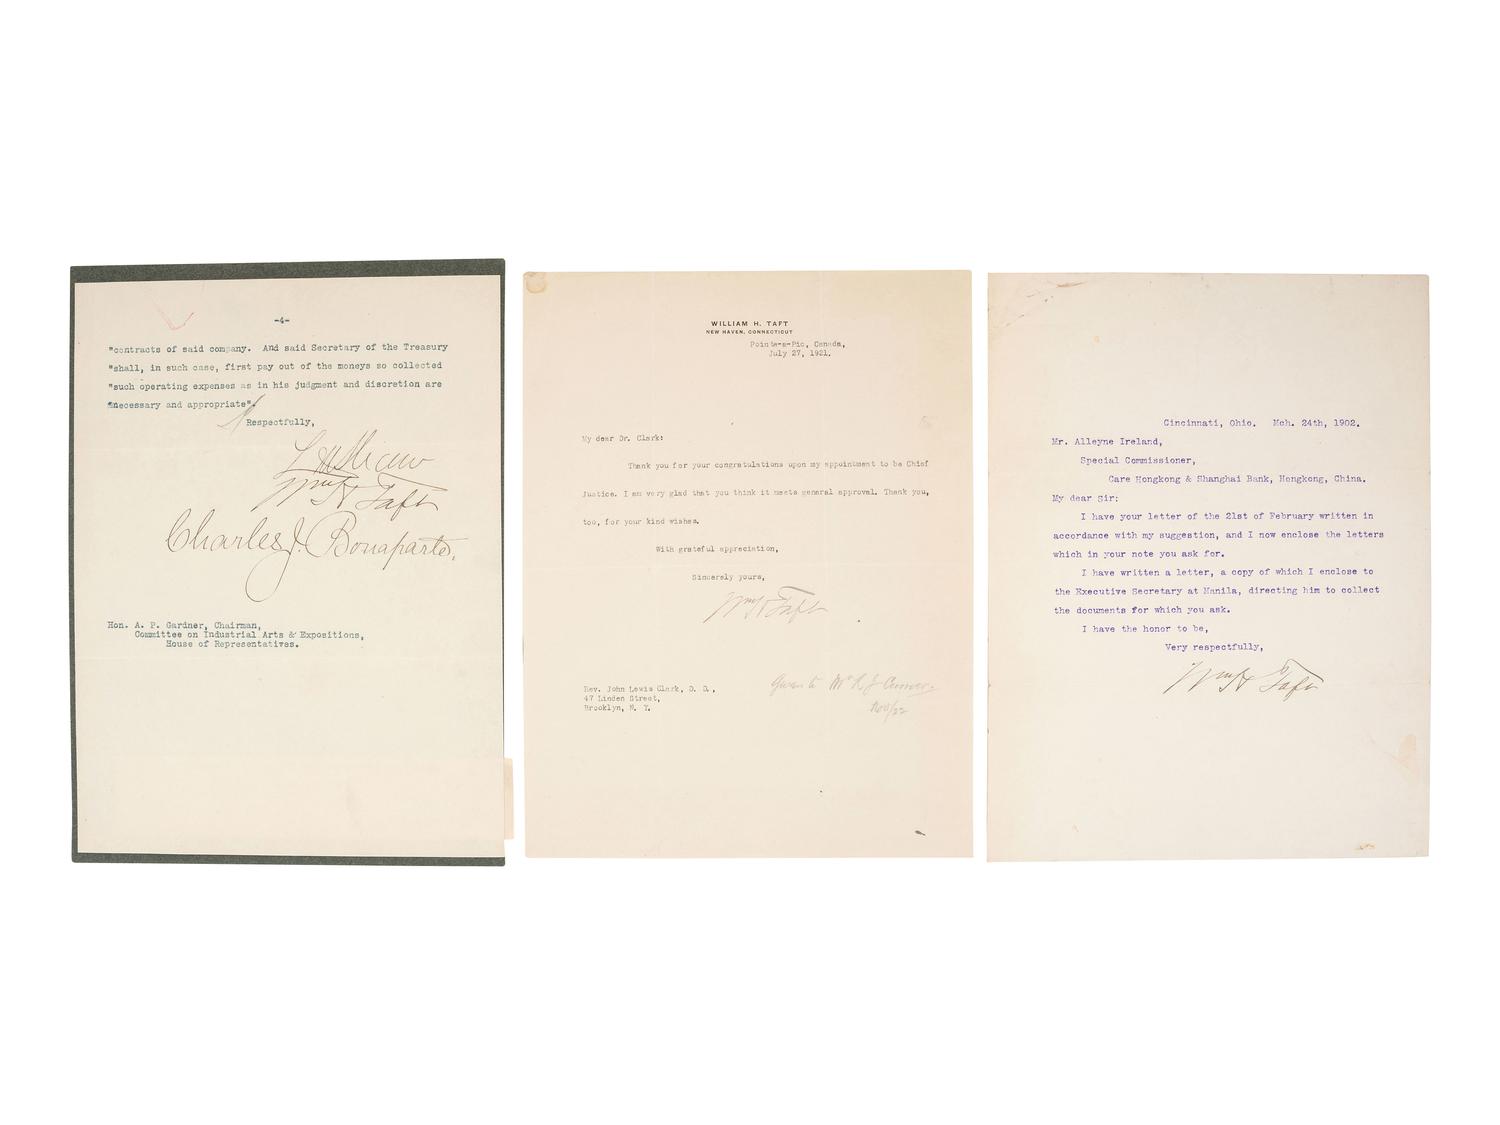 -4-
"contracts of said company. And said Secretary of the Treasury
"shall, in such case, first pay out of the moneys so collected
"such operating expenses as in his judgment and discretion are
"necessary and appropriate".
Respectfully,
Wm H Taft
Charles J. Bonaparte,
Hon. A. P. Gardner, Chairman,
Committee on Industrial Arts & Expositions,
House of Representatives.
WILLIAM H. TAFT
NEW HAVEN, CONNECTICUT
Pointe-a-Pic, Canada,
July 27, 1921.
My dear Dr. Clark:
Thank you for your congratulations upon my appointment to be Chief
Justice. I am very glad that you think it meets general approval. Thank you,
too, for your kind wishes.
With grateful appreciation,
Sincerely yours,
Wm H Taft
Rev. John Lewis Clark, D. D.,
47 Linden Street,
Brooklyn, N. Y.
Given to Mr R J
Nov/22
Cincinnati, Ohio. Mch. 24th, 1902.
Mr. Alleyne Ireland,
Special Commissioner,
Care Hongkong & Shanghai Bank, Hongkong, China.
My dear Sir:
I have your letter of the 21st of February written in
accordance with my suggestion, and I now enclose the letters
which in your note you ask for.
I have written a letter, a copy of which I enclose to
the Executive Secretary at Manila, directing him to collect
the documents for which you ask.
I have the honor to be,
Very respectfully,
Wm H Taft